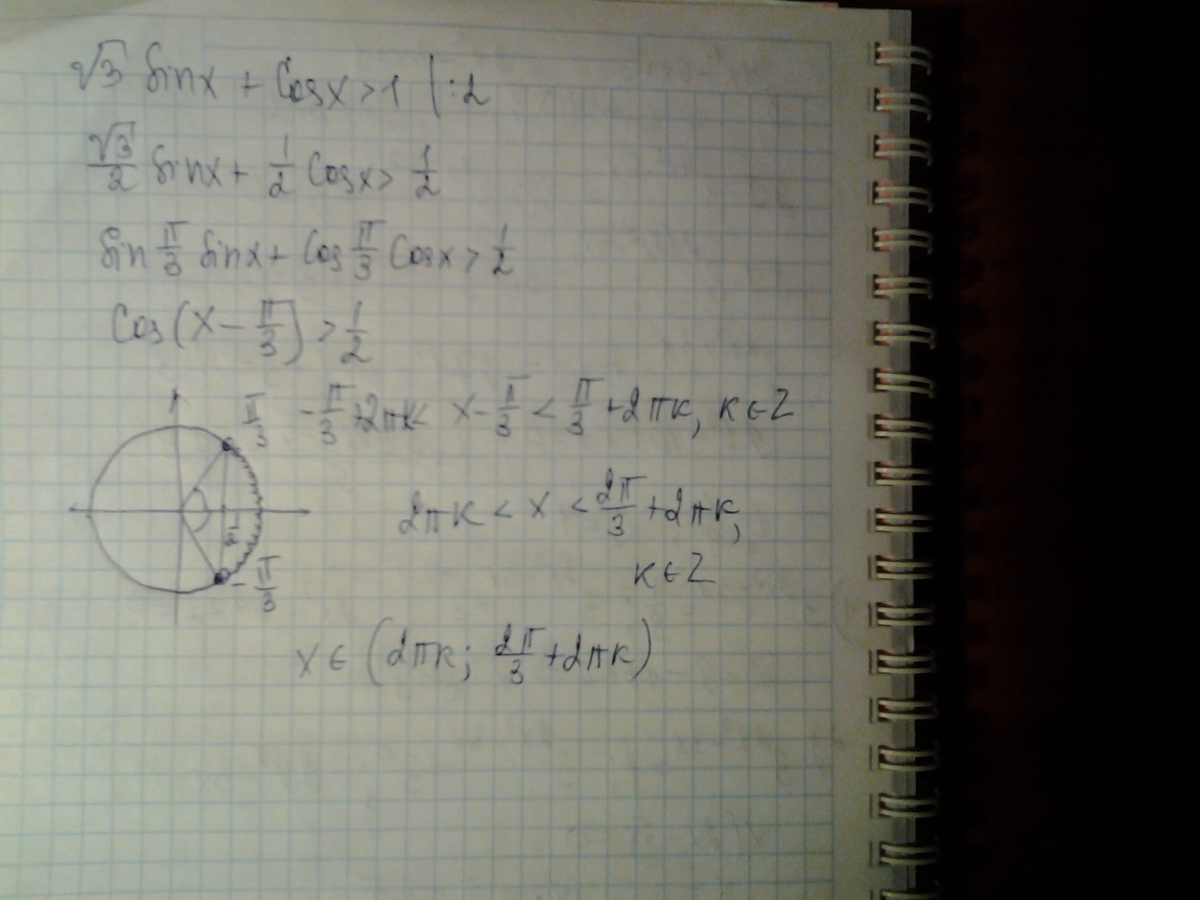 √3 sinx + cosx > 1 | :2
√3/2 sinx + 1/2 cosx > 1/2
sin π/3 sinx + cos π/3 cosx > 1/2
cos(x - π/3) > 1/2
π/3
-π/3 + 2πk < x - π/3 < π/3 + 2πk, k ∈ Z
2πk < x < 2π/3 + 2πk,
-π/3
k ∈ Z
x ∈ (2πk; 2π/3 + 2πk)